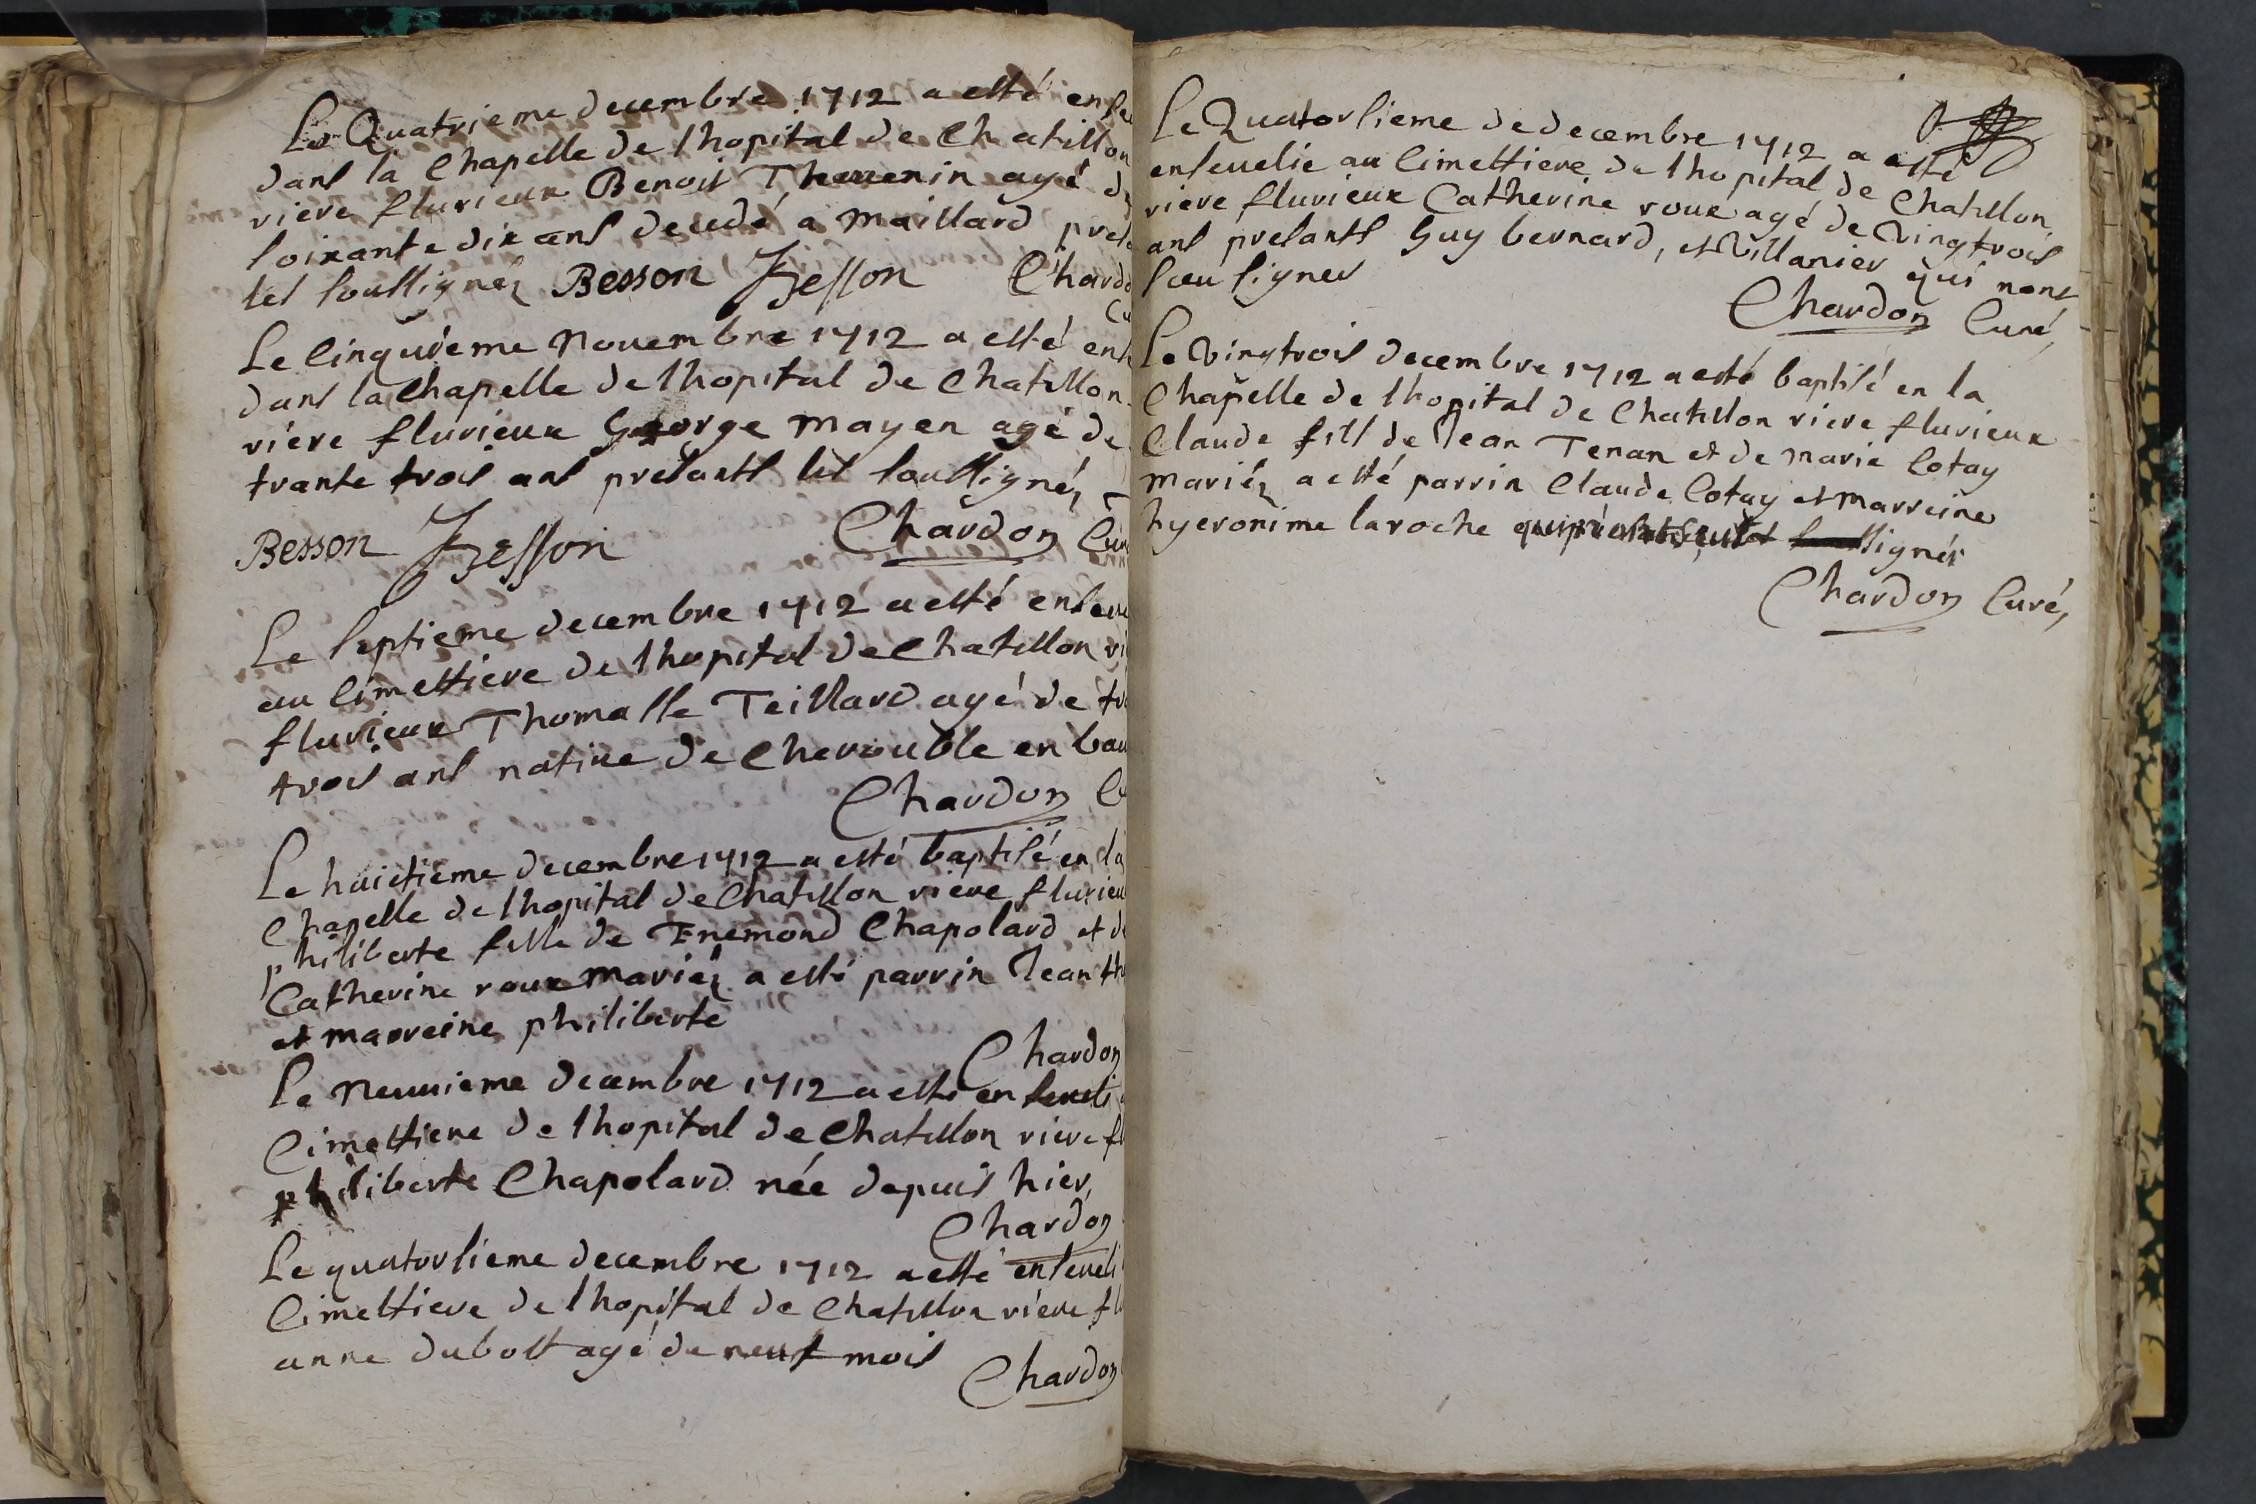 Le Quatrieme decembre 1712 a esté ense
dans la Chapelle de lhopital de Chatillon
riere fluvieux Benoist Thevenin agé d
soixante dix ans decedé a Maillard prese
les soussignéz Besson Besson Chardo
Cu
Le Cinquieme Novembre 1712 a esté ens
dans la Chapelle de lhopital de Chatillon
riere fluvieux George mayen agé de
trante trois ans presants les soussignéz
Besson Besson Chardon Cur
Le septieme decembre 1712 a esté enseve
au Cimettiere de lhopital de Chatillon ri
fluvieux Thomasse Teillard agé de tr
trois ans native de Cherouble en bau
Chardon C
Le huictieme decembre 1712 a esté baptisé en la
Chapelle de lhopital de Chatillon riere fluvieu
philiberte fille de Enemond Chapolard et d
Catherine roux mariéz a esté parrin Jean th
et marreine philiberte
Chardon
Le Neuvieme decembre 1712 a esté enseveli
Cimettiere de lhopital de Chatillon riere fl
philiberte Chapolard née depuis hier
Chardon
Le quatorsieme decembre 1712 a esté enseveli
Cimettiere de lhopital de Chatillon riere fl
anne dubost agé de neuf mois
Chardon
Le Quatorsieme de decembre 1712 a esté
ensevelie au Cimettiere de lhopital de Chatillon
riere fluvieux Catherine roux agé de vingtrois
ans presants Guy bernard, et Villanier qui nont
sceu signer
Chardon Curé,
Le vingtrois decembre 1712 a esté baptisé en la
Chapelle de lhopital de Chatillon riere fluvieux
Claude fils de Jean Tenan et de marie Cotay
mariéz a esté parrin Claude Cotay et marreine
hyeronime laroche signer
Chardon Curé,